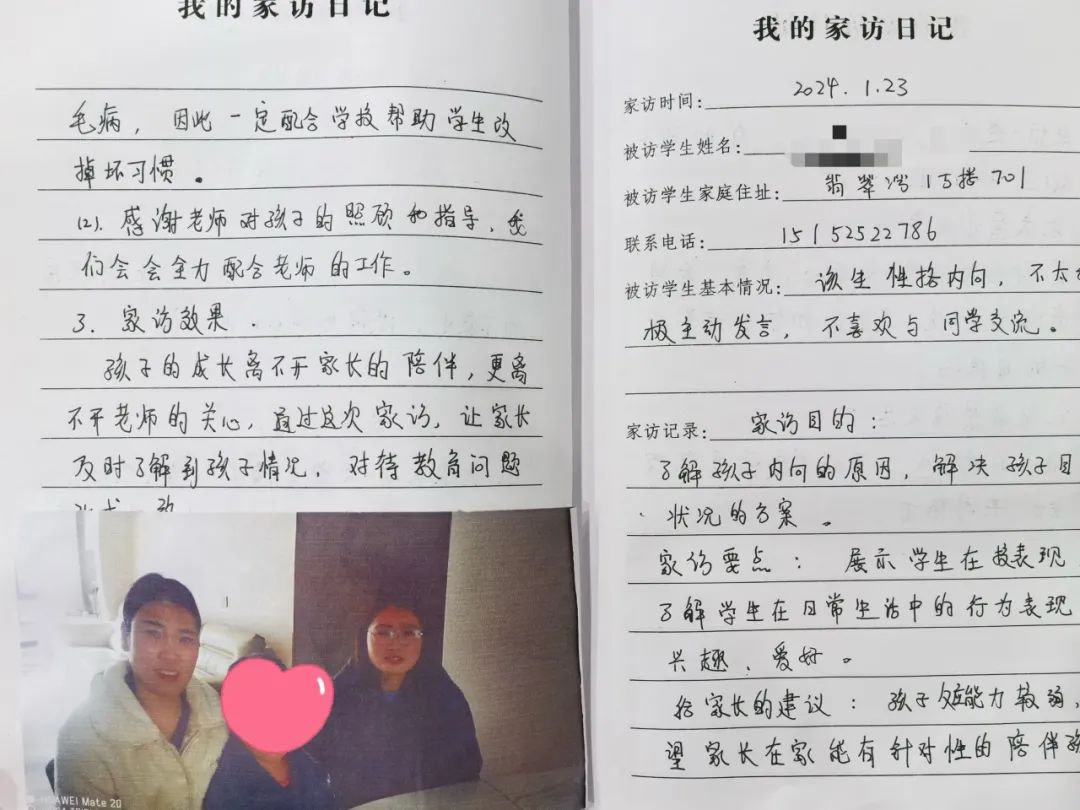 我的家访日记
毛病，因此一定配合学校帮助学生改
掉坏习惯。
(2). 感谢老师对孩子的照顾和指导，我
们会会全力配合老师的工作。
3. 家访效果.
孩子的成长离不开家长的陪伴，更离
不开老师的关心，通过这次家访，让家长
及时了解到孩子情况，对待教育问题
HUAWEI Mate 20
我的家访日记
家访时间：2024.1.23
被访学生姓名：
被访学生家庭住址：翡翠湾 15 701
联系电话：15152522786
被访学生基本情况：该生性格内向，不太
极主动发言，不喜欢与同学交流。
家访记录：家访目的：
了解孩子内向的原因，解决孩子目
状况的方案。
家访要点：展示学生在校表现
了解学生在日常生活中的行为表现
兴趣、爱好。
给家长的建议：孩子 能力较弱，
望家长在家能有针对性的陪伴孩